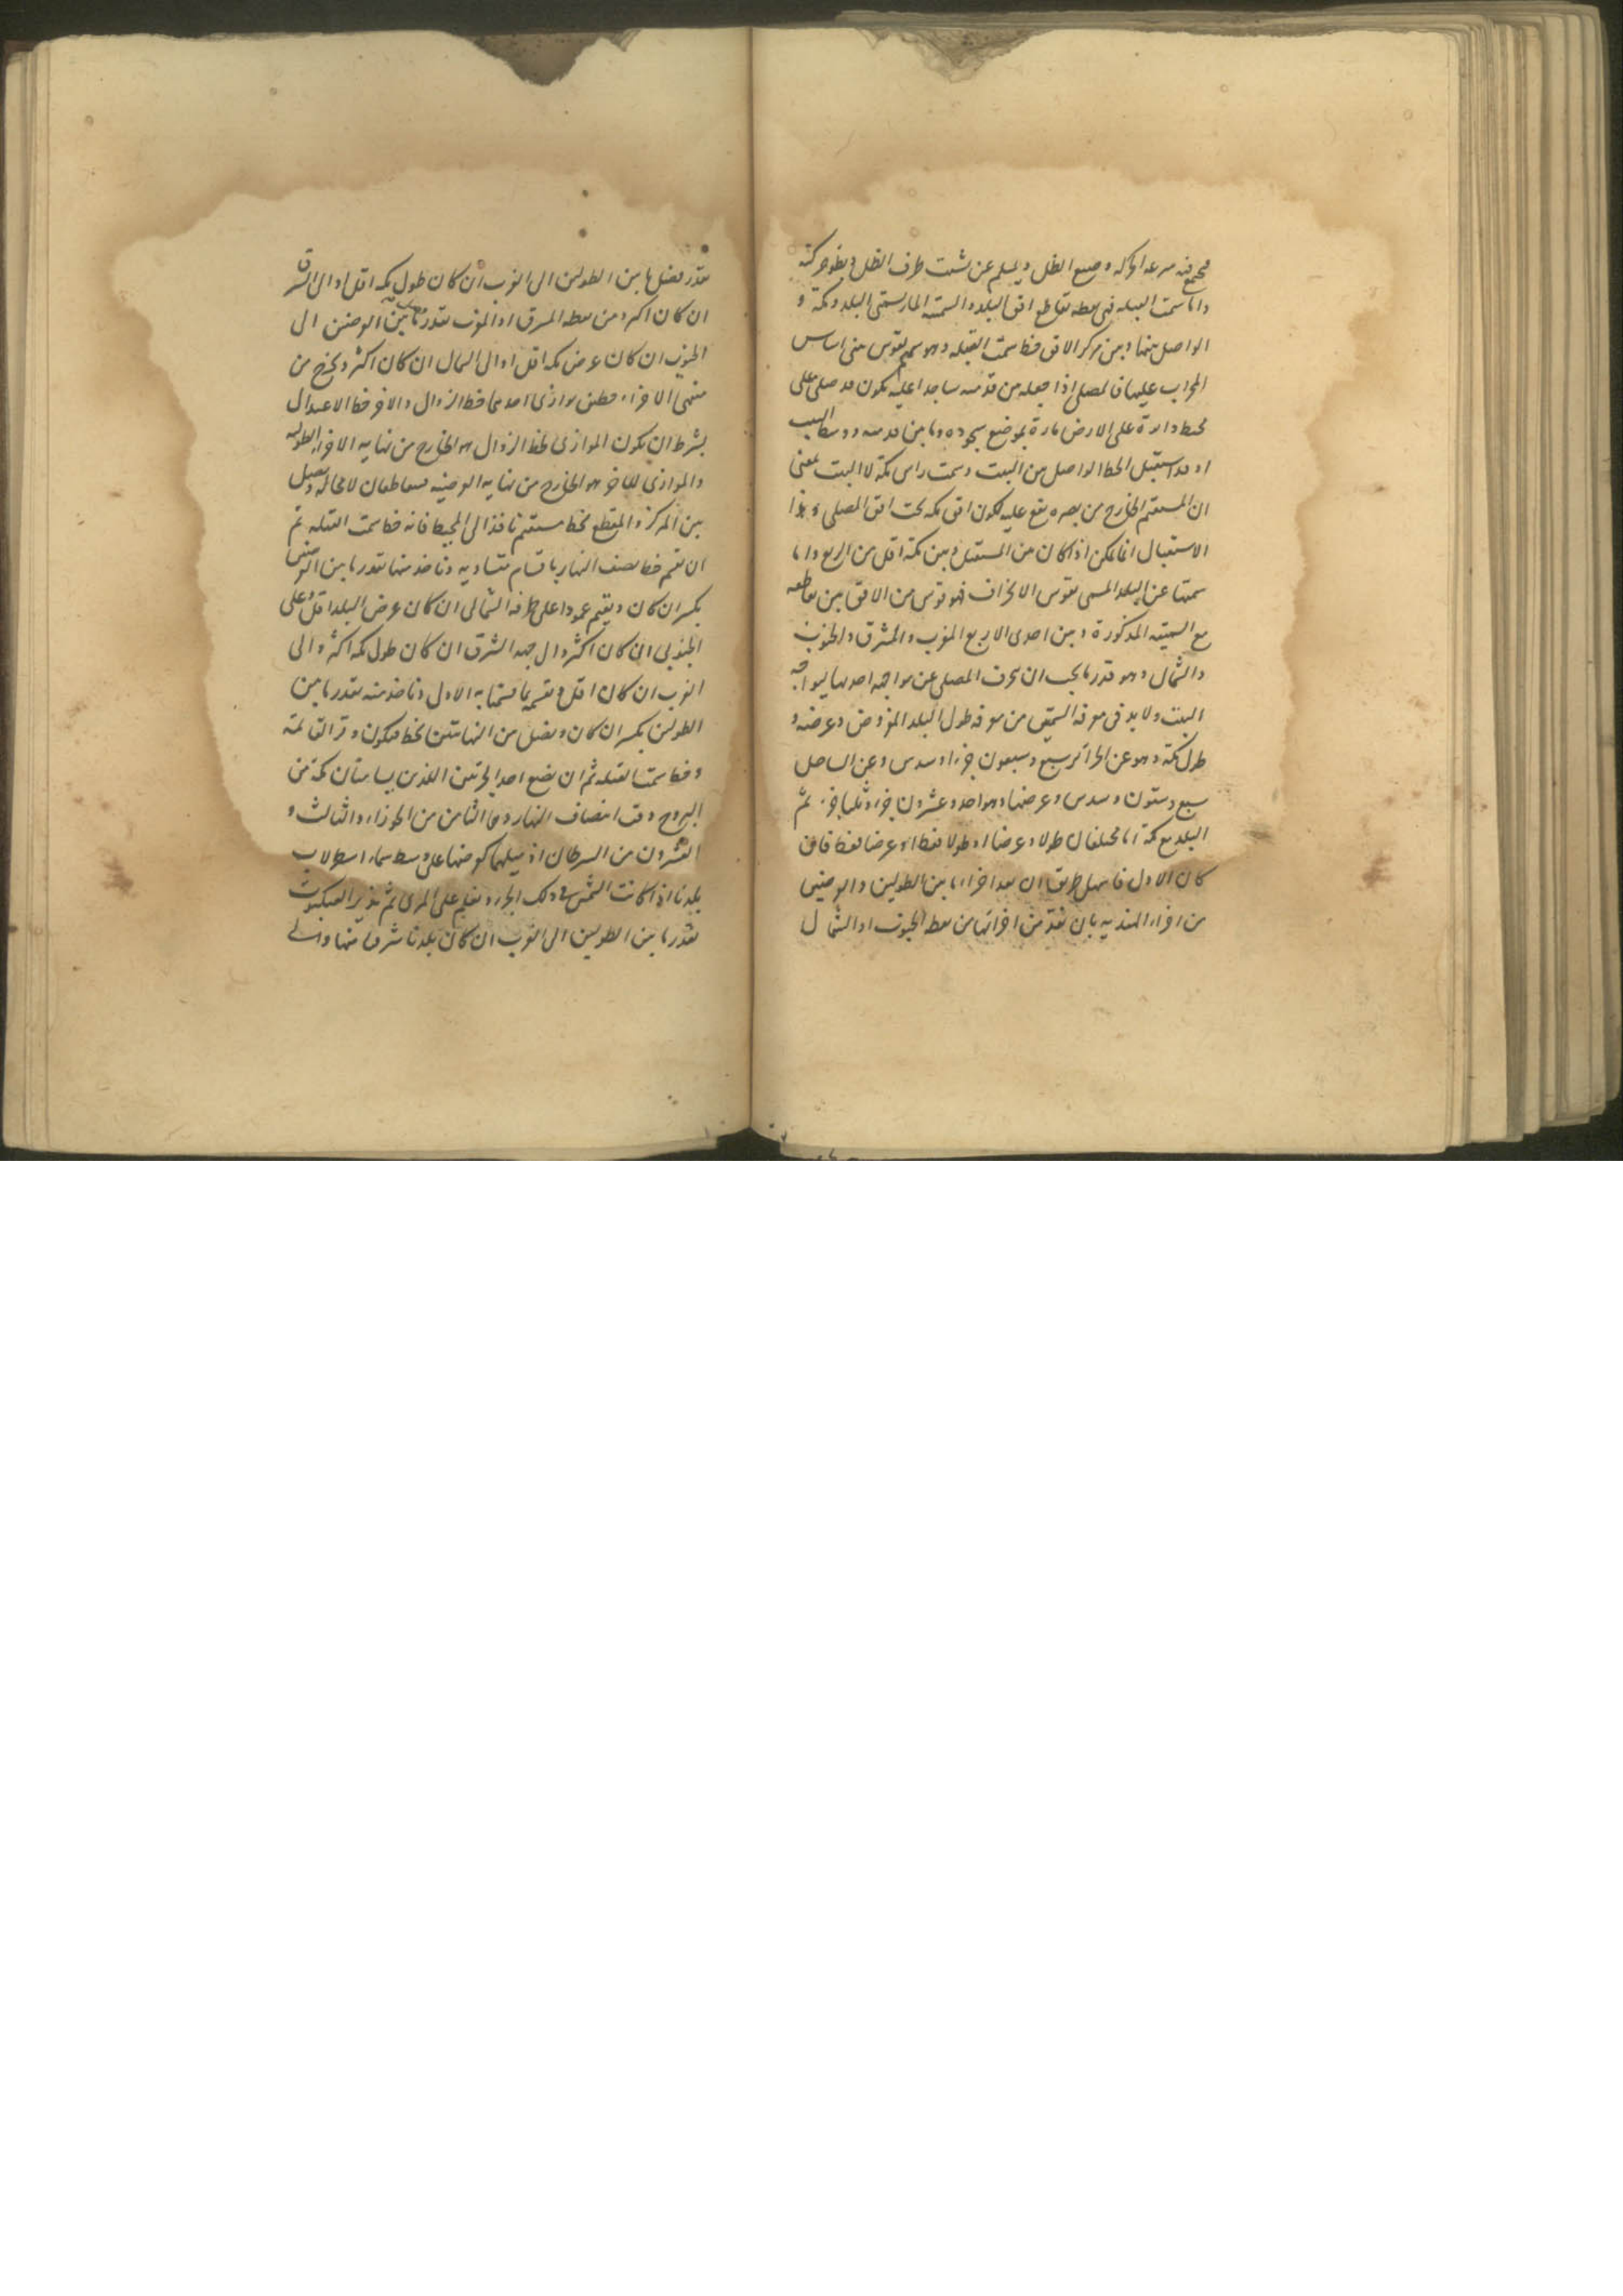 فيجمع فيه سرعة الحركة وضيع الظل ويسلم عن تشتت طرف الظل وبطؤ حركته
واما سمت القبلة فهي نقطة تقاطع افق البلد والسمتية المارة بسمتي البلد ومكة و
الواصل بينهما وبين مركز الافق خط سمت القبلة وهو سهم لقوس يبنى اساس
المحراب عليها فالمصلي اذا جعله من قدميه ساجدا عليه يكون قد صلى على
محيط دائرة على الارض مارة بموضع سجوده وما بين قدميه ووسط البيت
او قد استقبل الخط الواصل بين البيت وسمت راس مكة لا البيت بمعنى
ان المستقيم الخارج من بصره يقع عليه لكون افق مكة تحت افق المصلي وهذا
الاستقبال انما يمكن اذا كان بين المستقبل وبين مكة اقل من الربع واما
سمتها عن البلد المسمى بقوس الانحراف فهو قوس من الافق بين تقاطعه
مع السمتية المذكورة وبين احدى الاربع المغرب والمشرق والجنوب
والشمال وهو قدر ما يجب ان ينحرف المصلي عن مواجهة احديها ليواجه
البيت ولا بد في معرفة السمتين من معرفة طول البلد المفروض وعرضه و
طول مكة وهو عن الجزائر سبع وسبعون جزءا وسدس وعن الساحل
سبع وستون وسدس وعرضها وهو احد وعشرون جزء وثلثا جزء ثم
البلد مع مكة اما مختلفان طولا وعرضا او طولا فقط او عرضا فقط فان
كان الاول فاسهل طريق ان يعد اجزاء ما بين الطولين والعرضين
من اجزاء الهندية بان نعد من اجزائها من نقطة الجنوب او الشمال
بقدر فضل ما بين الطولين الى الغرب ان كان طول مكة اقل او الى الشرق
ان كان اكثر ومن نقطة المشرق او المغرب بقدر ما بين العرضين الى
الجنوب ان كان عرض مكة اقل او الى الشمال ان كان اكثر ويخرج من
منتهى الاجزاء خطين يوازي احدهما خط الزوال والاخر خط الاعتدال
بشرط ان يكون الموازي لخط الزوال هو الخارج من نهاية الاجزاء الطولية
والموازي للاخر هو الخارج من نهاية العرضية فيتقاطعان لا محالة ويصل
بين المركز والمقطع بخط مستقيم نافذ الى المحيط فانه خط سمت القبلة ثم
ان نقسم خط نصف النهار باقسام متساوية وناخذ منها بقدر ما بين العرضين
بكسر ان كان ويقيم عمودا على طرفه الشمالي ان كان عرض البلد اقل وعلى
الجنوبي ان كان اكثر والى جهة الشرق ان كان طول مكة اكثر والى
الغرب ان كان اقل ونقسمه بما قسمنا به الاول وناخذ منه بقدر ما بين
الطولين بكسر ان كان ونصل بين النهايتين بخط فيكون وتر القائمة
وخط سمت القبلة ثم ان نضع احد الجزئين اللذين يسامتان مكة من
البروج وقت انتصاف النهار وهما الثامن من الجوزاء والثالث و
العشرون من السرطان اذ ميلهما كعرضها على وسط سماء اسطرلاب
بلدنا اذا كانت الشمس في ذلك الجزء ونعلم على المري ثم ندير العنكبوت
بقدر ما بين الطولين الى الغرب ان كان بلدنا شرقيا منها والى